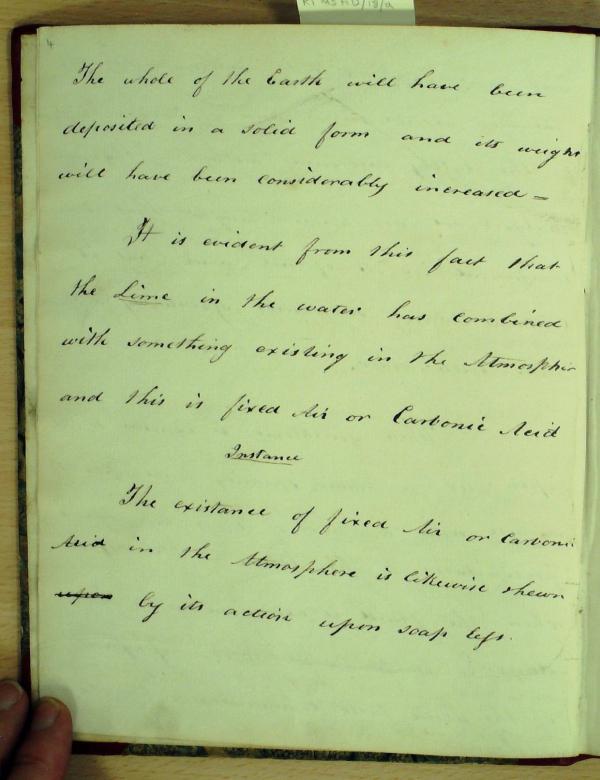 4
The whole of the Earth will have been
deposited in a solid form and its weight
will have been considerably increased =
It is evident from this fact that
the Lime in the water has combined
with something existing in the Atmosphir
and this is fixed Air or Carbonic Acid
Instance
The existance of fixed Air or Carbonic
Acid in the Atmosphere is likewise shewn
upon by its action upon soap